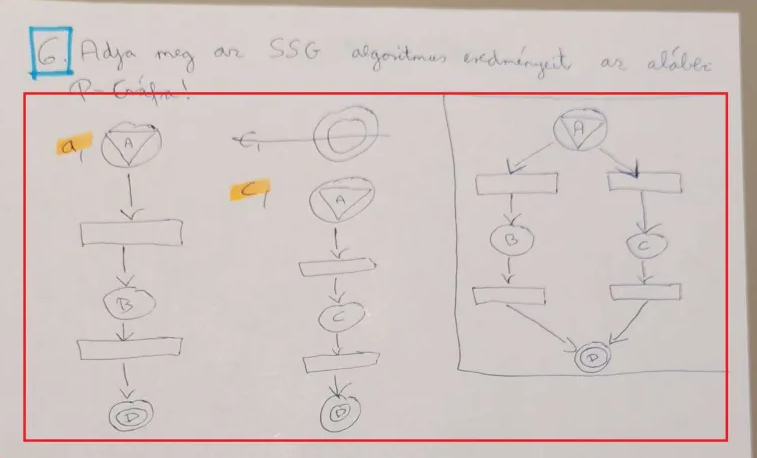 6. Adja meg az SSG algoritmus eredményeit az alábbi
P-Gráfra!
a, A
B
D
C,
c, A
C
D
A
B C
D